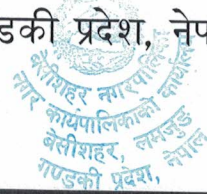 डकी प्रदेश, नेप
बेसीशहर नगरपालिका
नगर कार्यपालिकाको कार्यालय
बेसीशहर, लमजुङ
गण्डकी प्रदेश, नेपाल